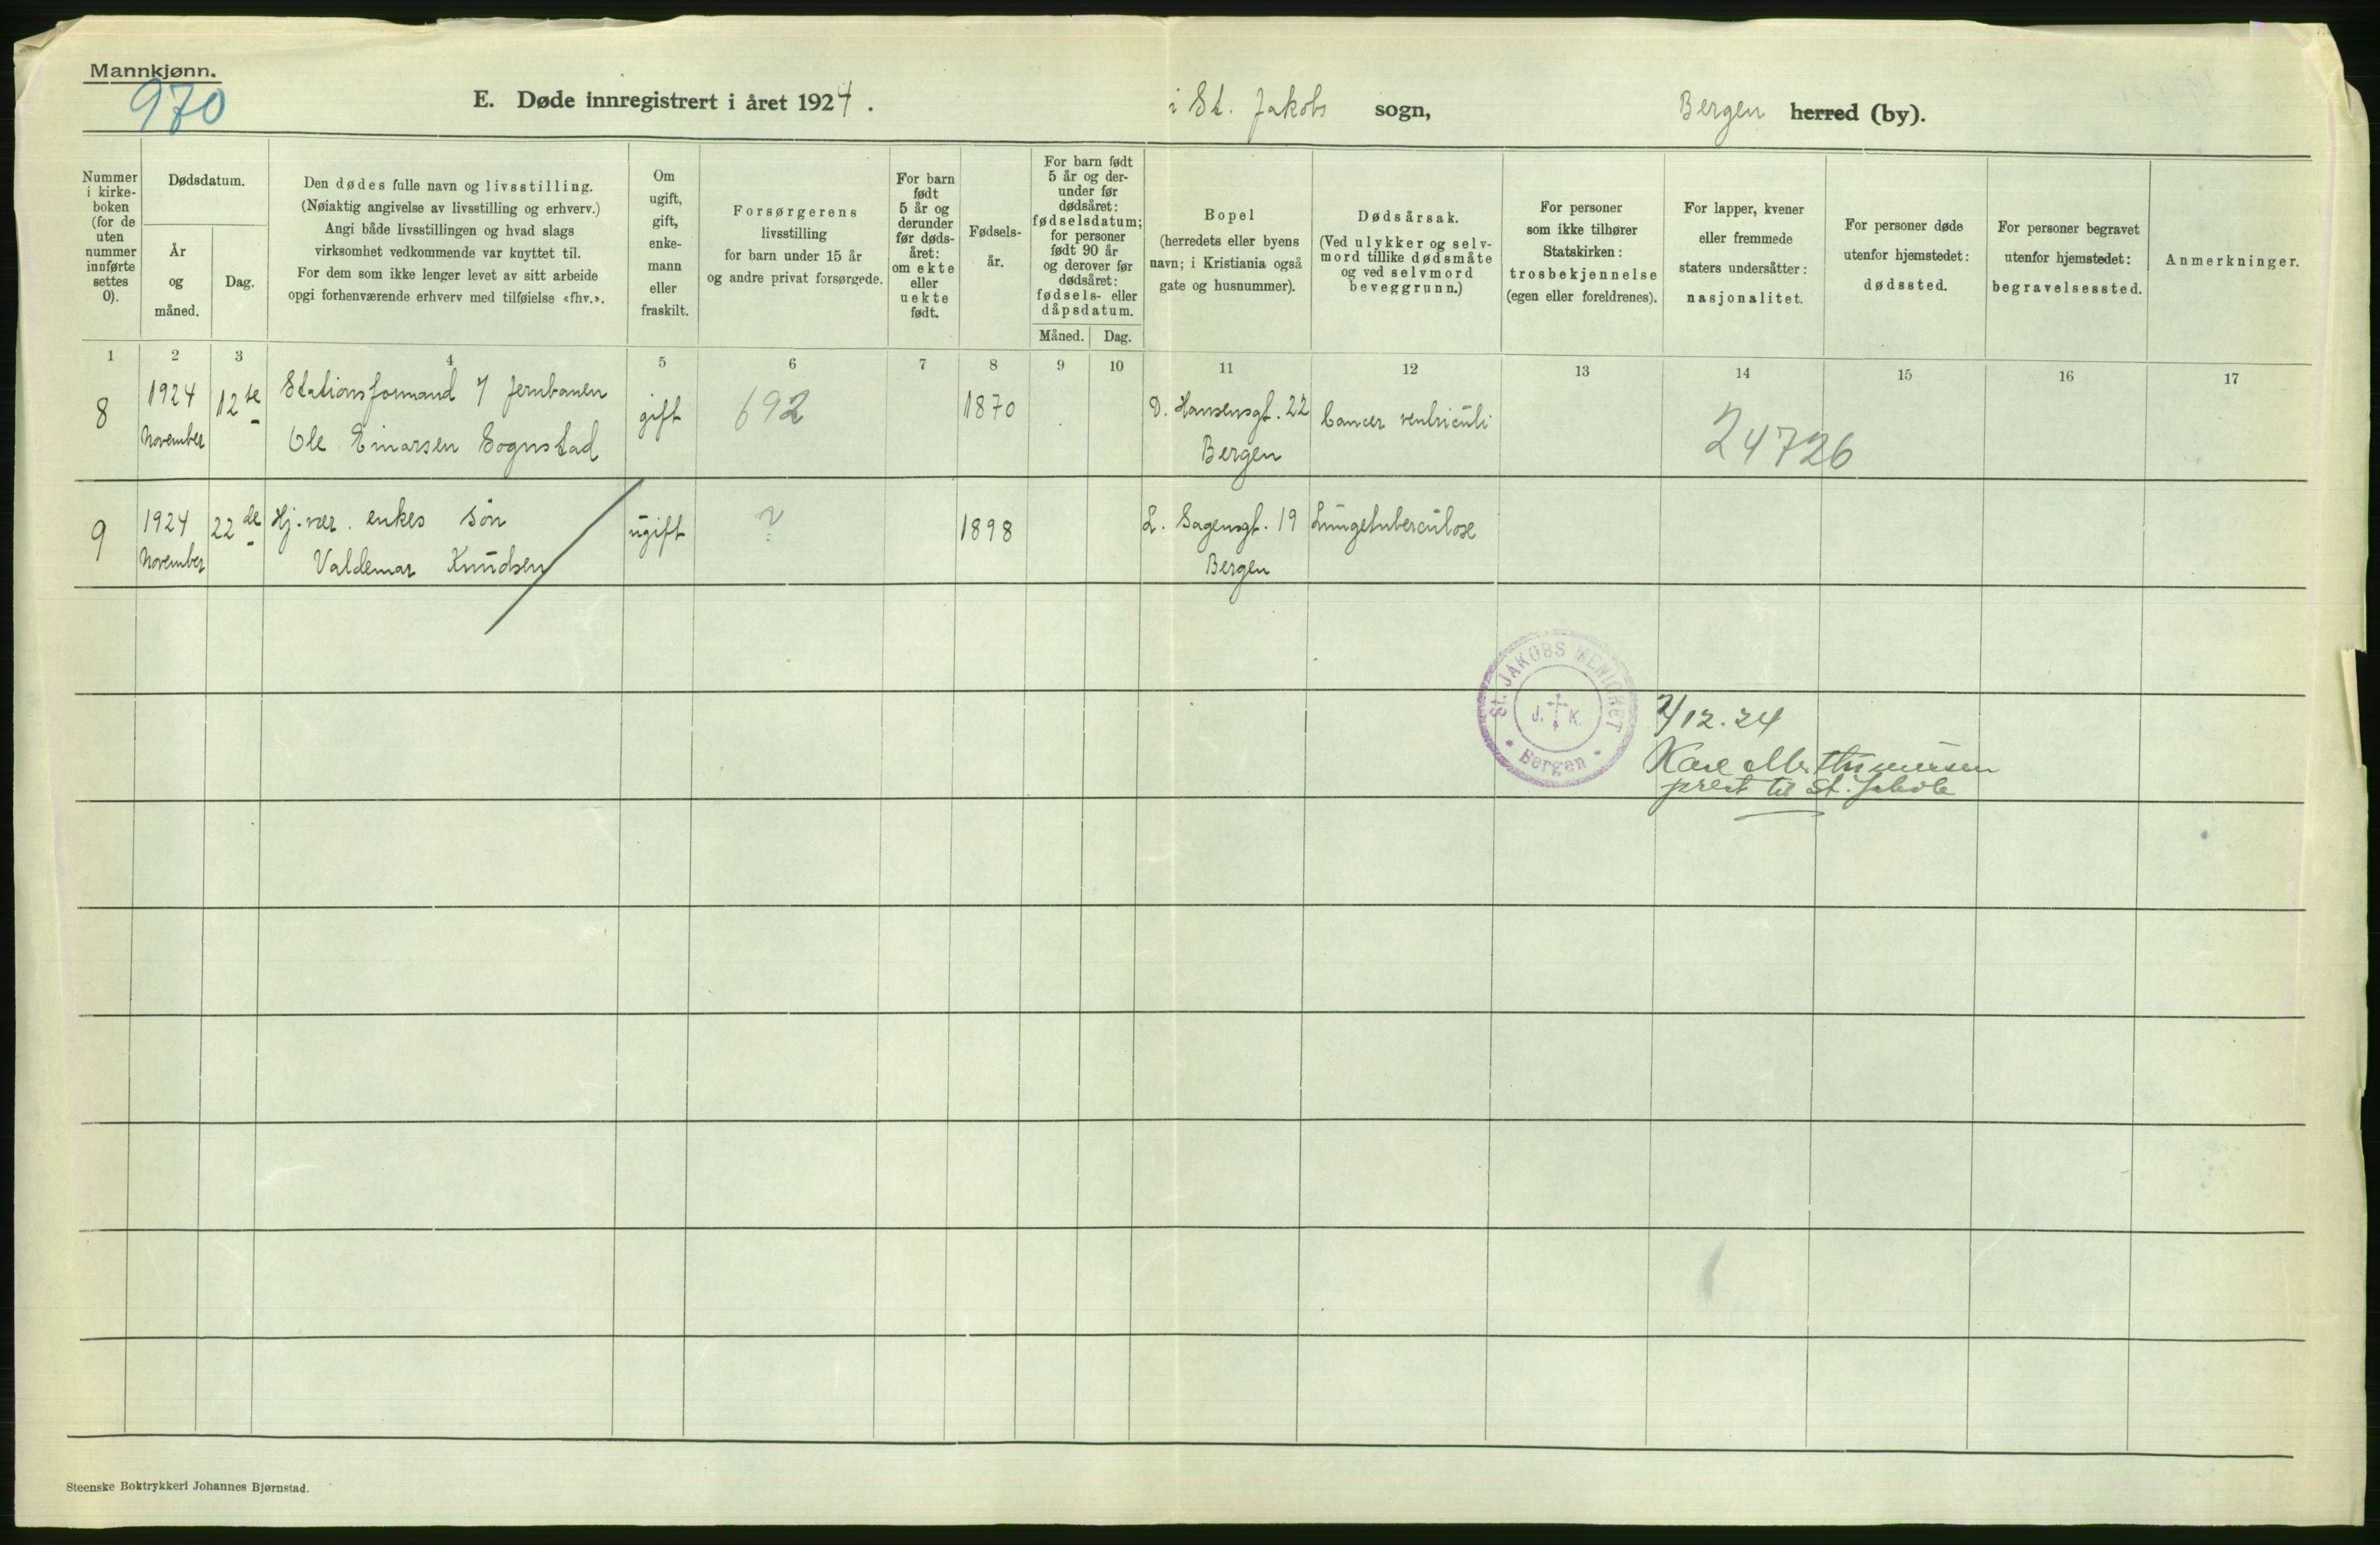 Mannkjønn.
970
E. Døde innregistrert i året 1924. i St. Jakobs sogn, Bergen herred (by).
Nummer
i kirke-
boken
(for de
uten
nummer
innførte
settes
0).
Dødsdatum.
År
og
måned.
Dag.
Den dødes fulle navn og livsstilling.
(Nøiaktig angivelse av livsstilling og erhverv.)
Angi både livsstillingen og hvad slags
virksomhet vedkommende var knyttet til.
For dem som ikke lenger levet av sitt arbeide
opgi forhenværende erhverv med tilføielse «fhv.».
Om
ugift,
gift,
enke-
mann
eller
fraskilt.
Forsørgerens
livsstilling
for barn under 15 år
og andre privat forsørgede.
For barn
født
5 år og
derunder
før døds-
året:
om ekte
eller
uekte
født.
Fødsels-
år.
For barn født
5 år og der-
under før
dødsåret:
fødselsdatum;
for personer
født 90 år
og derover før
dødsåret:
fødsels- eller
dåpsdatum.
Måned. Dag.
Bopel
(herredets eller byens
navn; i Kristiania også
gate og husnummer).
Dødsårsak.
(Ved ulykker og selv-
mord tillike dødsmåte
og ved selvmord
beveggrunn.)
For personer
som ikke tilhører
Statskirken:
trosbekjennelse
(egen eller foreldrenes).
For lapper, kvener
eller fremmede
staters undersåtter:
nasjonalitet.
For personer døde
utenfor hjemstedet:
dødssted.
For personer begravet
utenfor hjemstedet:
begravelsessted.
Anmerkninger.
1 2 3 4 5 6 7 8 9 10 11 12 13 14 15 16 17
8 1924 12te Stationsformand v/ Jernbanen gift 692 1870 D. Hansensgt. 22 Cancer ventriculi 24726
November Ole Einarsen Sognstad Bergen
9 1924 22de Hj. vær. enkes søn ugift ? 1898 L. Sagensgt. 19 Lungetuberculose
November Valdemar Knudsen Bergen
St. JAKOBS MENIGHET
J. K.
Bergen
2/12.24
Karl
prest til St. Jakob
Steenske Boktrykkeri Johannes Bjørnstad.